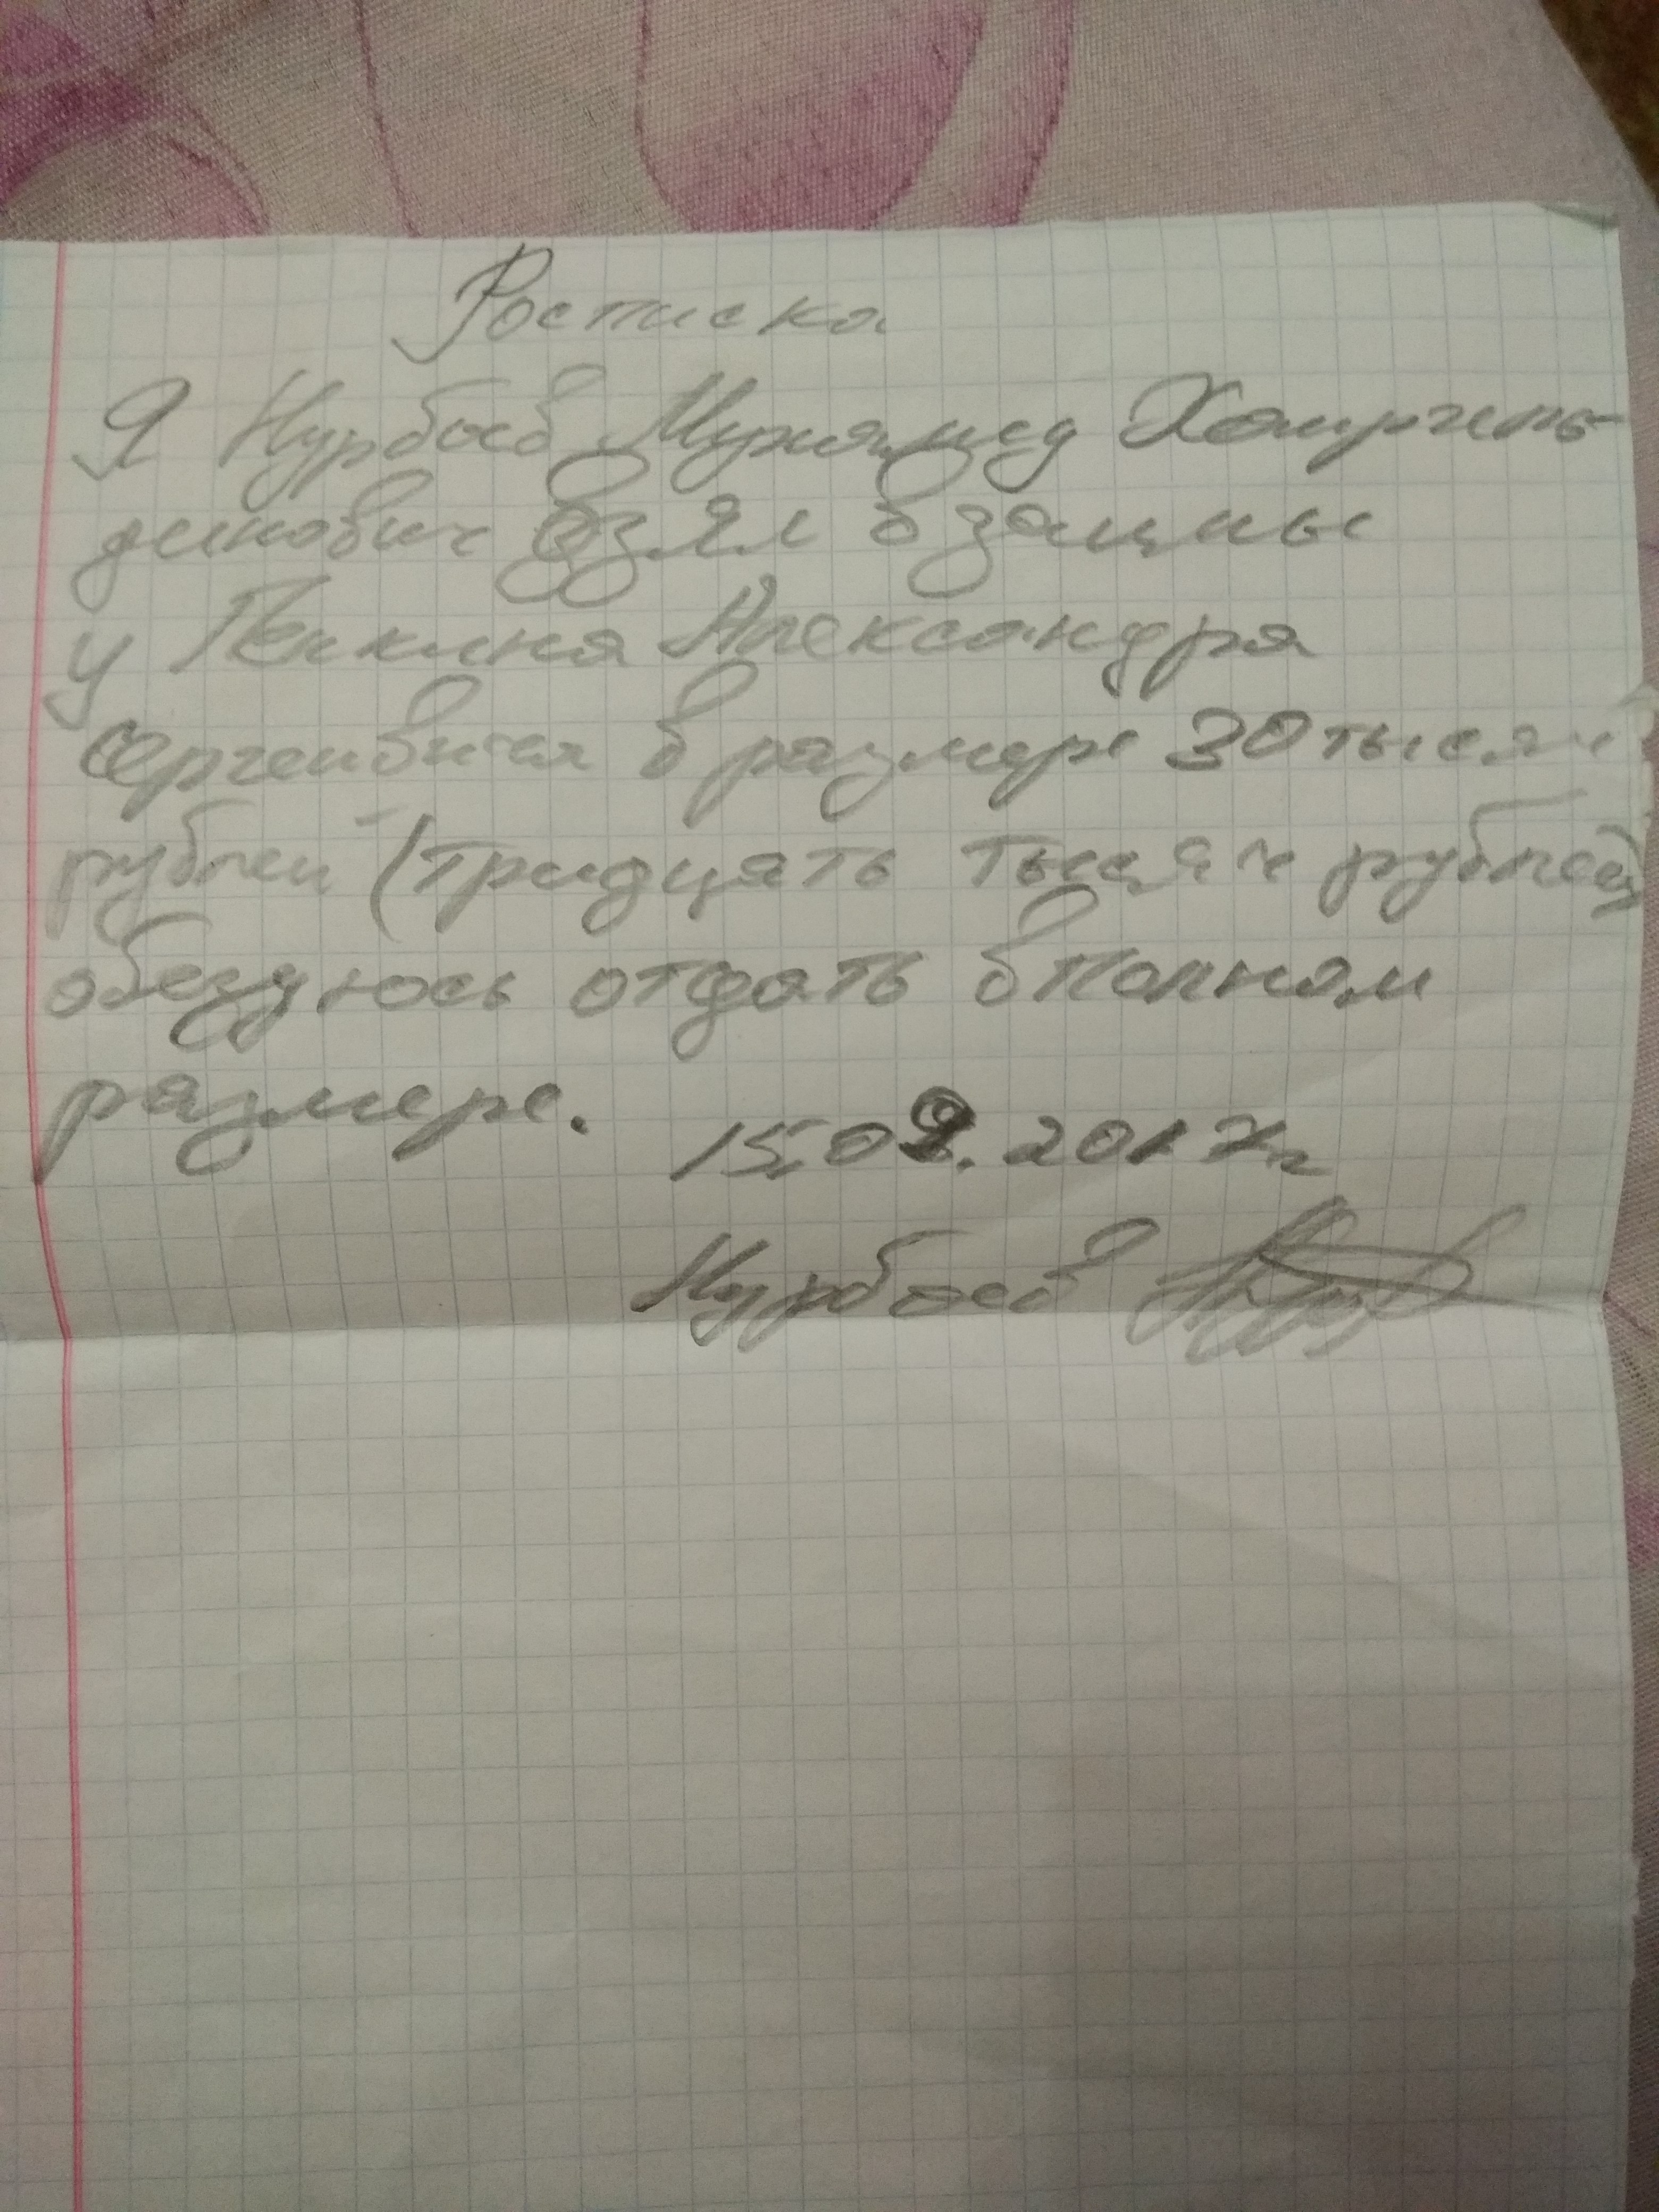 Росписка
Я Нурбоев Мухямед
динович взял взаимы
у Генкина Александра
Сергеивичя в размере 30 тысяч
рублей (тридцять тысяч рублей)
обезуюсь отдать вполном
размере.
15.09.2017г
Нурбоев